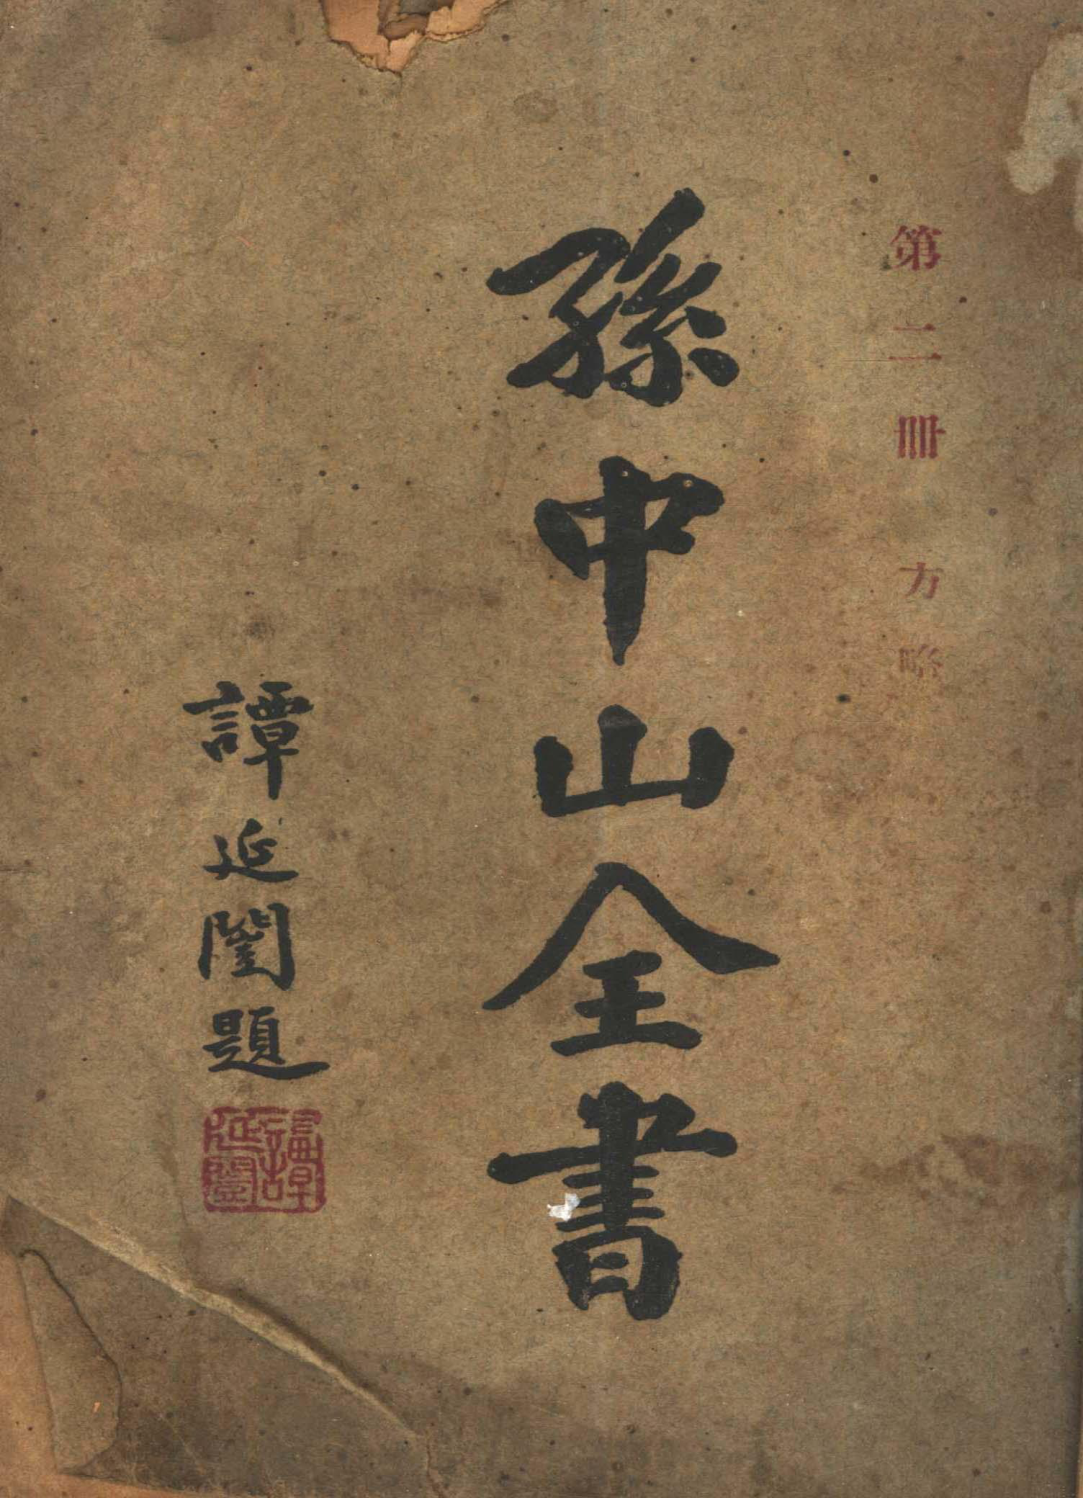 第二冊 方略
孫中山全書
譚延闓題
譚延闓